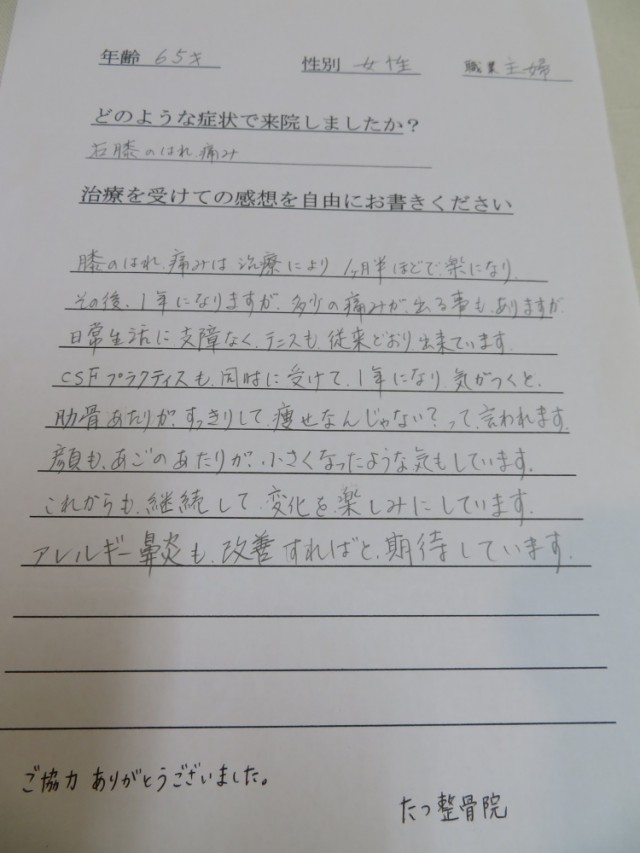 年齢 65才 性別 女性 職業 主婦
どのような症状で来院しましたか？
右膝のはれ痛み
治療を受けての感想を自由にお書きください
膝のはれ、痛みは治療により1ヶ月半ほどで、楽になり、
その後、1年になりますが、多少の痛みが、出る事も、ありますが
日常生活に支障なく、テニスも、従来どおり出来ています。
CSFプラクティスも、同時に受けて、1年になり気がつくと、
肋骨あたりが、すっきりして、痩せなんじゃない？って、言われます。
顔も、あごのあたりが、小さくなったような気もしています。
これからも、継続して、変化を、楽しみにしています。
アレルギー鼻炎も、改善すればと、期待しています。
ご協力ありがとうございました。
たつ整骨院